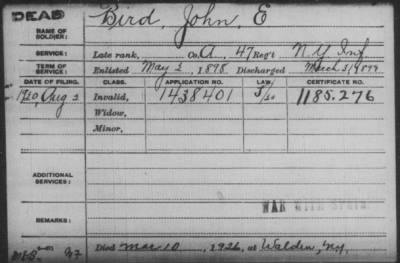 DEAD
NAME OF SOLDIER: Bird, John, E
SERVICE: Late rank, Co. A, 47 Reg't N.Y. Inf
TERM OF SERVICE: Enlisted May 2, 1898 Discharged March 31, 1899
DATE OF FILING. CLASS. APPLICATION NO. LAW. CERTIFICATE NO.
1920, Aug 2 Invalid, 1438401 1185.276
Widow,
Minor,
ADDITIONAL SERVICES:
WAR WITH SPAIN
REMARKS:
Died Mar. 10, 1926, at Walden, N.Y.